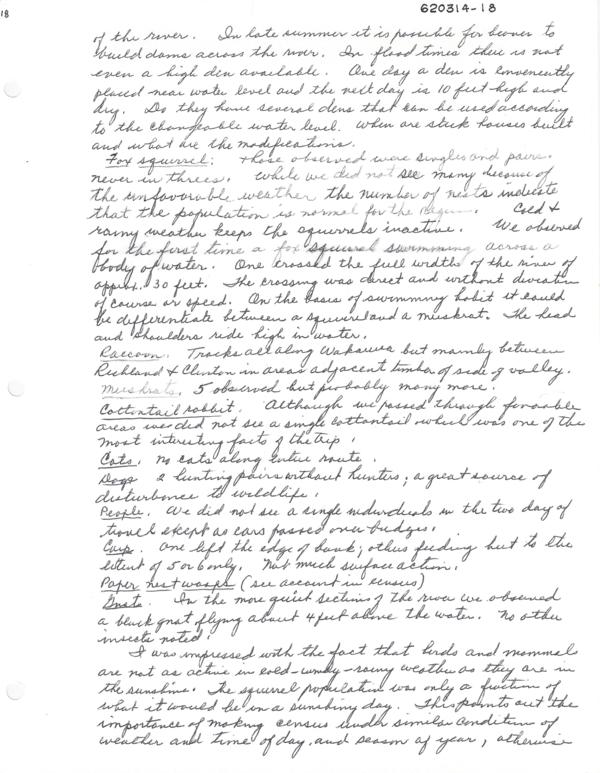 18
620314-18
of the river. In late summer it is possible for beaver to
build dams across the river. In flood times there is not
even a high den available. One day a den is conveniently
placed near water level and the next day is 10 feet high and
dry. Do they have several dens that can be used according
to the changeable water level. When are stick houses built
and what are the modifications.
Fox squirrel: those observed were singles and pairs.
never in threes. While we did not see many because of
the unfavorable weather the number of nests indicate
that the population is normal for the Region. Cold &
rainy weather keeps the squirrels inactive. We observed
for the first time a fox squirrel swimming across a
body of water. One crossed the full widths of the river of
approx. 30 feet. The crossing was direct and without
of course or speed. On the basis of swimming habit it could
be differentiate between a squirrel and a muskrat. The head
and shoulders ride high in water.
Raccoon. Tracks all along Wakarusa but mainly between
Richland & Clinton in areas adjacent timber of side of valley.
Muskrats. 5 observed but probably many more.
Cottontail rabbit. Although we passed through favorable
areas we did not see a single cottontail which was one of the
most interesting facts of the trip.
Cats. no cats along entire route.
Dogs 2 hunting pairs without hunters; a great source of
disturbance to wildlife.
People. We did not see a single individuals in the two day of
travel exept as cars passed over bridges.
Carp. One left the edge of bank; others feeding but to the
extent of 5 or 6 only. Not much surface action.
Paper nest wasps (see account in census)
Gnats. In the more quiet sections of the river we observed
a black gnat flying about 4 feet above the water. No other
insects noted.
I was impressed with the fact that birds and mammals
are not as active in cold-windy-rainy weather as they are in
the sunshine. The squirrel population was only a fraction of
what it would be on a sunshiny day. This points out the
importance of making census under similar condition of
weather and time of day, and season of year, otherwise